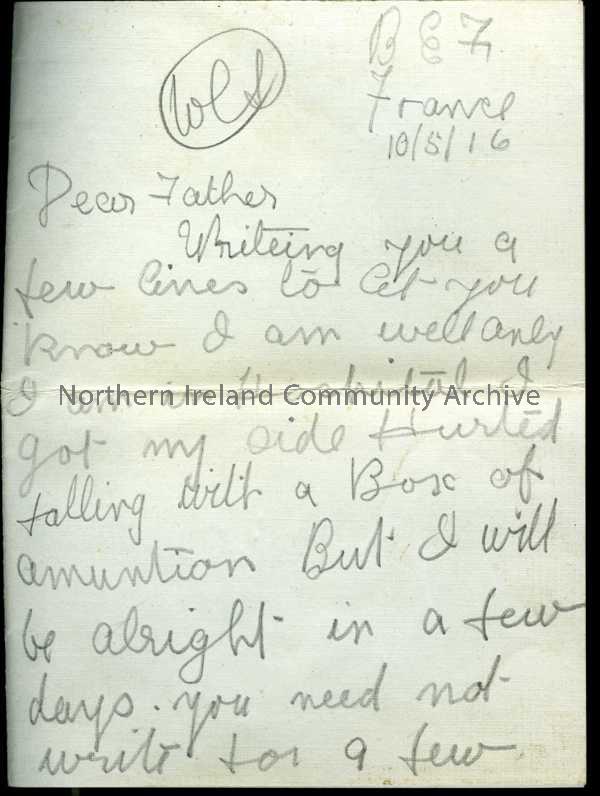 B E F
France
10/5/16
Dear Father
Writeing you a
few lines to let you
know I am well only
I am in Hospital I
Northern Ireland Community Archive
got my side Hurted
falling with a Box of
amuntion But I will
be alright in a few
days. you need not
write for a few